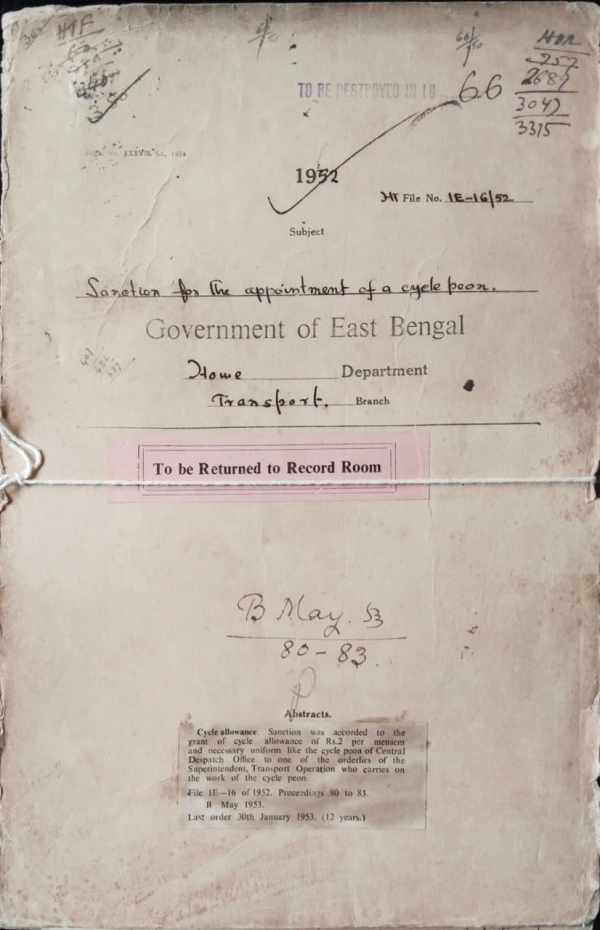 HTF
TO BE DESTROYED IN 19 66
HDR
257
2687
3047
3315
1952
HT File No. 1E-16/52
Subject
Sanction for the appointment of a cycle peon.
Government of East Bengal
Home Department
Transport. Branch
To be Returned to Record Room
B May. 53
80-83.
Abstracts.
Cycle allowance. Sanction was accorded to the
grant of cycle allowance of Rs.2 per mensem
and necessary uniform like the cycle peon of Central
Despatch Office to one of the orderlies of the
Superintendent, Transport Operation who carries on
the work of the cycle peon.
File 1E—16 of 1952. Proceedings 80 to 83.
B May 1953.
Last order 30th January 1953. (12 years.)